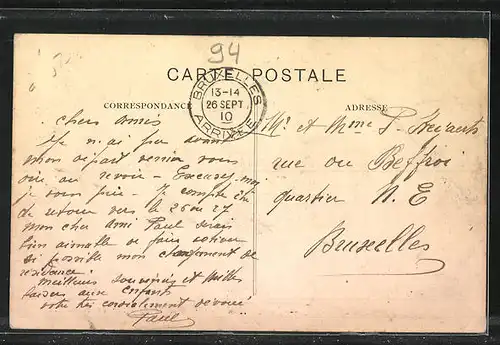 94
CARTE POSTALE
BRUXELLES
13-14
26 SEPT
10
ARRIVEE
CORRESPONDANCE
ADRESSE
chers amis
Je n'ai pu avant
mon départ venir vous
dire au revoir - Excusez-moi
je vous prie - Je compte être
de retour vers le 26 ou 27
mon cher ami Paul serais
bien aimable de faire activer
si possible mon changement de
résidence.
Meilleurs souvenirs et milles
baisers aux enfants
votre très cordialement dévoué
Paul
Mr et Mme P.
rue du Beffroi
quartier N. E
Bruxelles